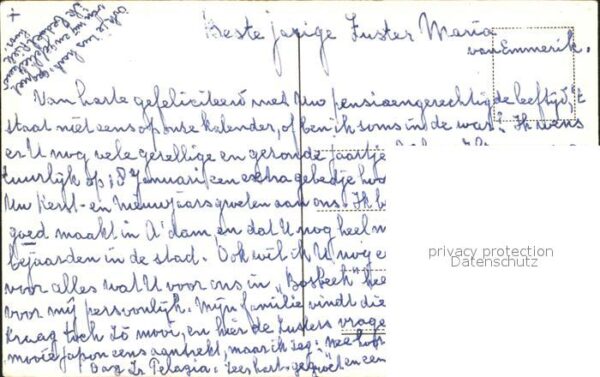 +
Beste jarige Zuster Maria
van Emmerik.
Van harte gefeliciteerd met Uw pensioengerechtigde leeftijd, 't
staat niet eens op onze kalender, of ben ik soms in de war? Ik wens
er U nog vele gezellige en gezonde jaartje
tuurlijk op 18 januari een extra gebedje hoo
Uw Kerst- en Nieuwjaarsgroeten aan ons. Ik b
goed maakt in A'dam en dat U nog heel
bejaarden in de stad. Ook wil ik U nog e
voor alles wat U voor ons in "Bosbeek" hee
voor mij persoonlijk. Mijn familie vindt die
Kraag toch zo mooi, en hier de Zusters vrage
mooie japon eens aantrekt, maar ik zeg: nee hoor
Zr Pelagia. Zeer hart. gegroet en een
privacy protection
Datenschutz